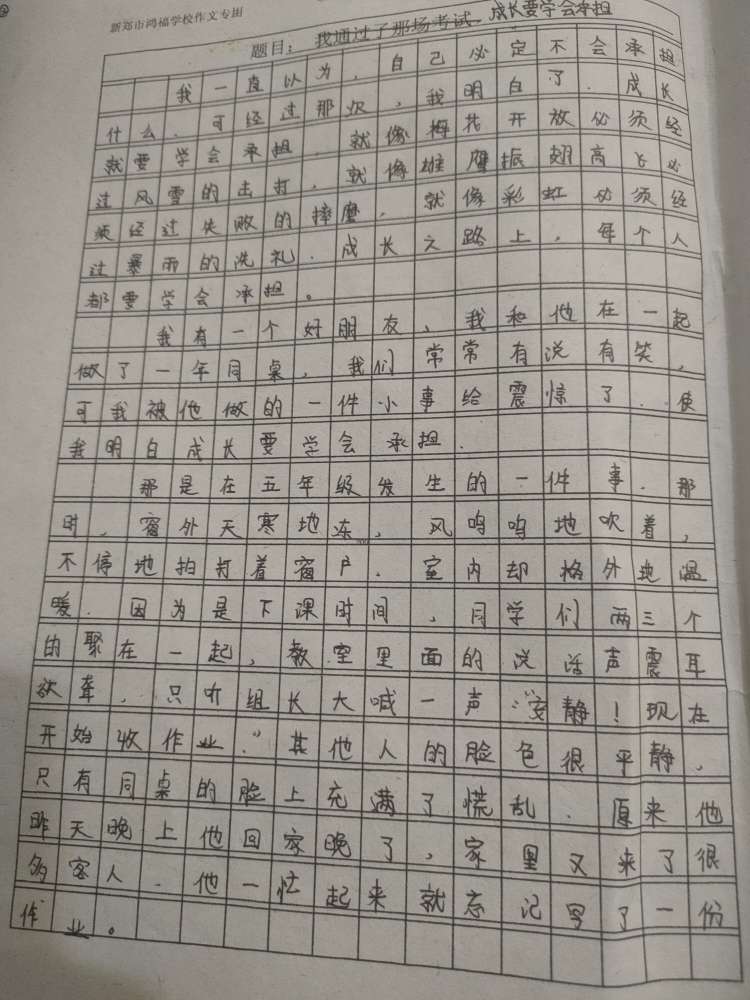 新郑市鸿福学校作文专用
题目：我通过了那场考试 成长要学会承担
我一直以为，自己必定不会承担
什么．可经过那次，我明白了．成长
就要学会承担．就像梅花开放必须经
过风雪的击打，就像雄鹰振翅高飞必
须经过失败的摔磨，就像彩虹必须经
过暴雨的洗礼．成长之路上，每个人
都要学会承担。
我有一个好朋友，我和他在一起
做了一年同桌，我们常常有说有笑，
可我被他做的一件小事给震惊了．使
我明白成长要学会承担．
那是在五年级发生的一件事．那
时，窗外天寒地冻，风呜呜地吹着，
不停地拍打着窗户．室内却格外地温
暖．因为是下课时间，同学们两三个
的聚在一起，教室里面的说话声震耳
欲聋，只听组长大喊一声：“安静！现在
开始收作业．”其他人的脸色很平静，
只有同桌的脸上充满了慌乱．原来他
昨天晚上他回家晚了，家里又来了很
多客人．他一忙起来就忘记写了一份
作业。